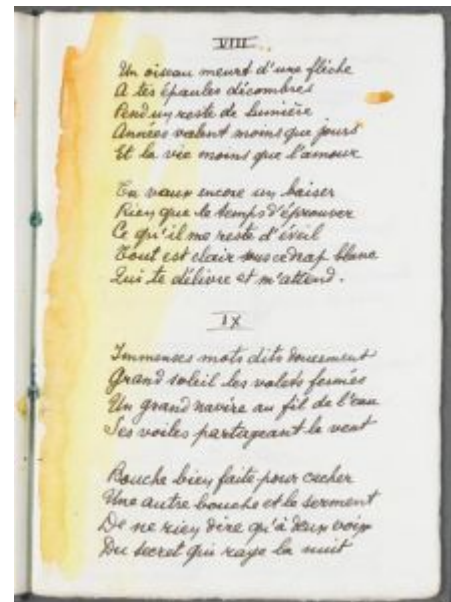 VIII
Un oiseau meurt d'une flèche
A tes épaules décombres
Pend un reste de lumière
Années valent moins que jours
Et la vie moins que l'amour
Tu vaux encore un baiser
Rien que le temps d'éprouver
Ce qu'il me reste d'éveil
Tout est clair sous ce drap blanc
Qui te délivre et m'attend.
IX
Immenses mots dits doucement
Grand soleil les volets fermés
Un grand navire au fil de l'eau
Ses voiles partageant le vent
Bouche bien faite pour cacher
Une autre bouche et le serment
De ne rien dire qu'à deux voix
Du secret qui raye la nuit